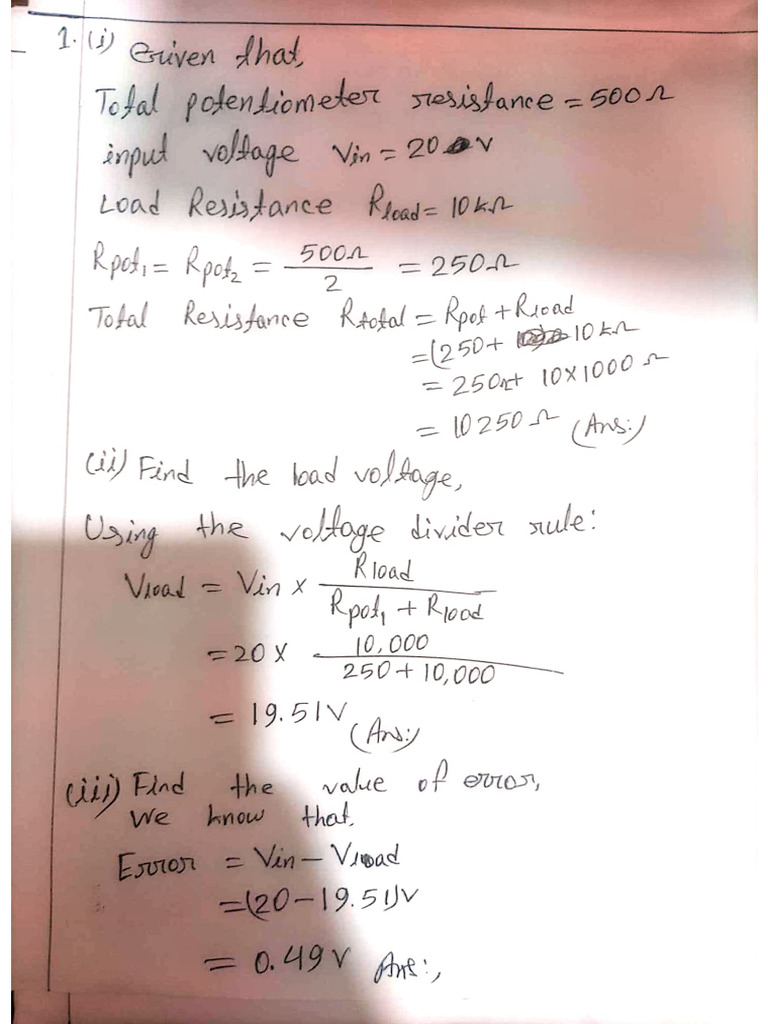 1. (i) Given that,
Total potentiometer resistance = 500Ω
input voltage Vin = 20 V
Load Resistance Rload = 10kΩ
Rpot₁ = Rpot₂ = 500Ω / 2 = 250Ω
Total Resistance Rtotal = Rpot + Rload
= (250 + 10kΩ
= 250Ω + 10×1000 Ω
= 10250Ω (Ans:)
(ii) Find the load voltage,
Using the voltage divider rule:
Vload = Vin × Rload / Rpot₁ + Rload
= 20 × 10,000 / 250 + 10,000
= 19.51V (Ans:)
(iii) Find the value of error,
We know that,
Error = Vin – Vload
= (20 – 19.51)V
= 0.49V Ans:,